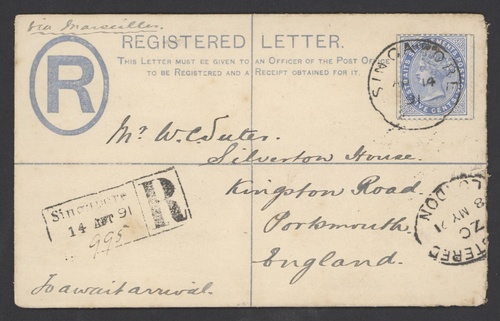 via Marseilles
REGISTERED LETTER.
THIS LETTER MUST BE GIVEN TO AN OFFICER OF THE POST OFFICE
TO BE REGISTERED AND A RECEIPT OBTAINED FOR IT.
R
SINGAPORE
14
91
Mr. W. C. Suter.
Silverton House.
Kingston Road.
Portsmouth.
England.
Singapore
14 91
R
995
REGISTERED LONDON
8 MY 91
To await arrival.